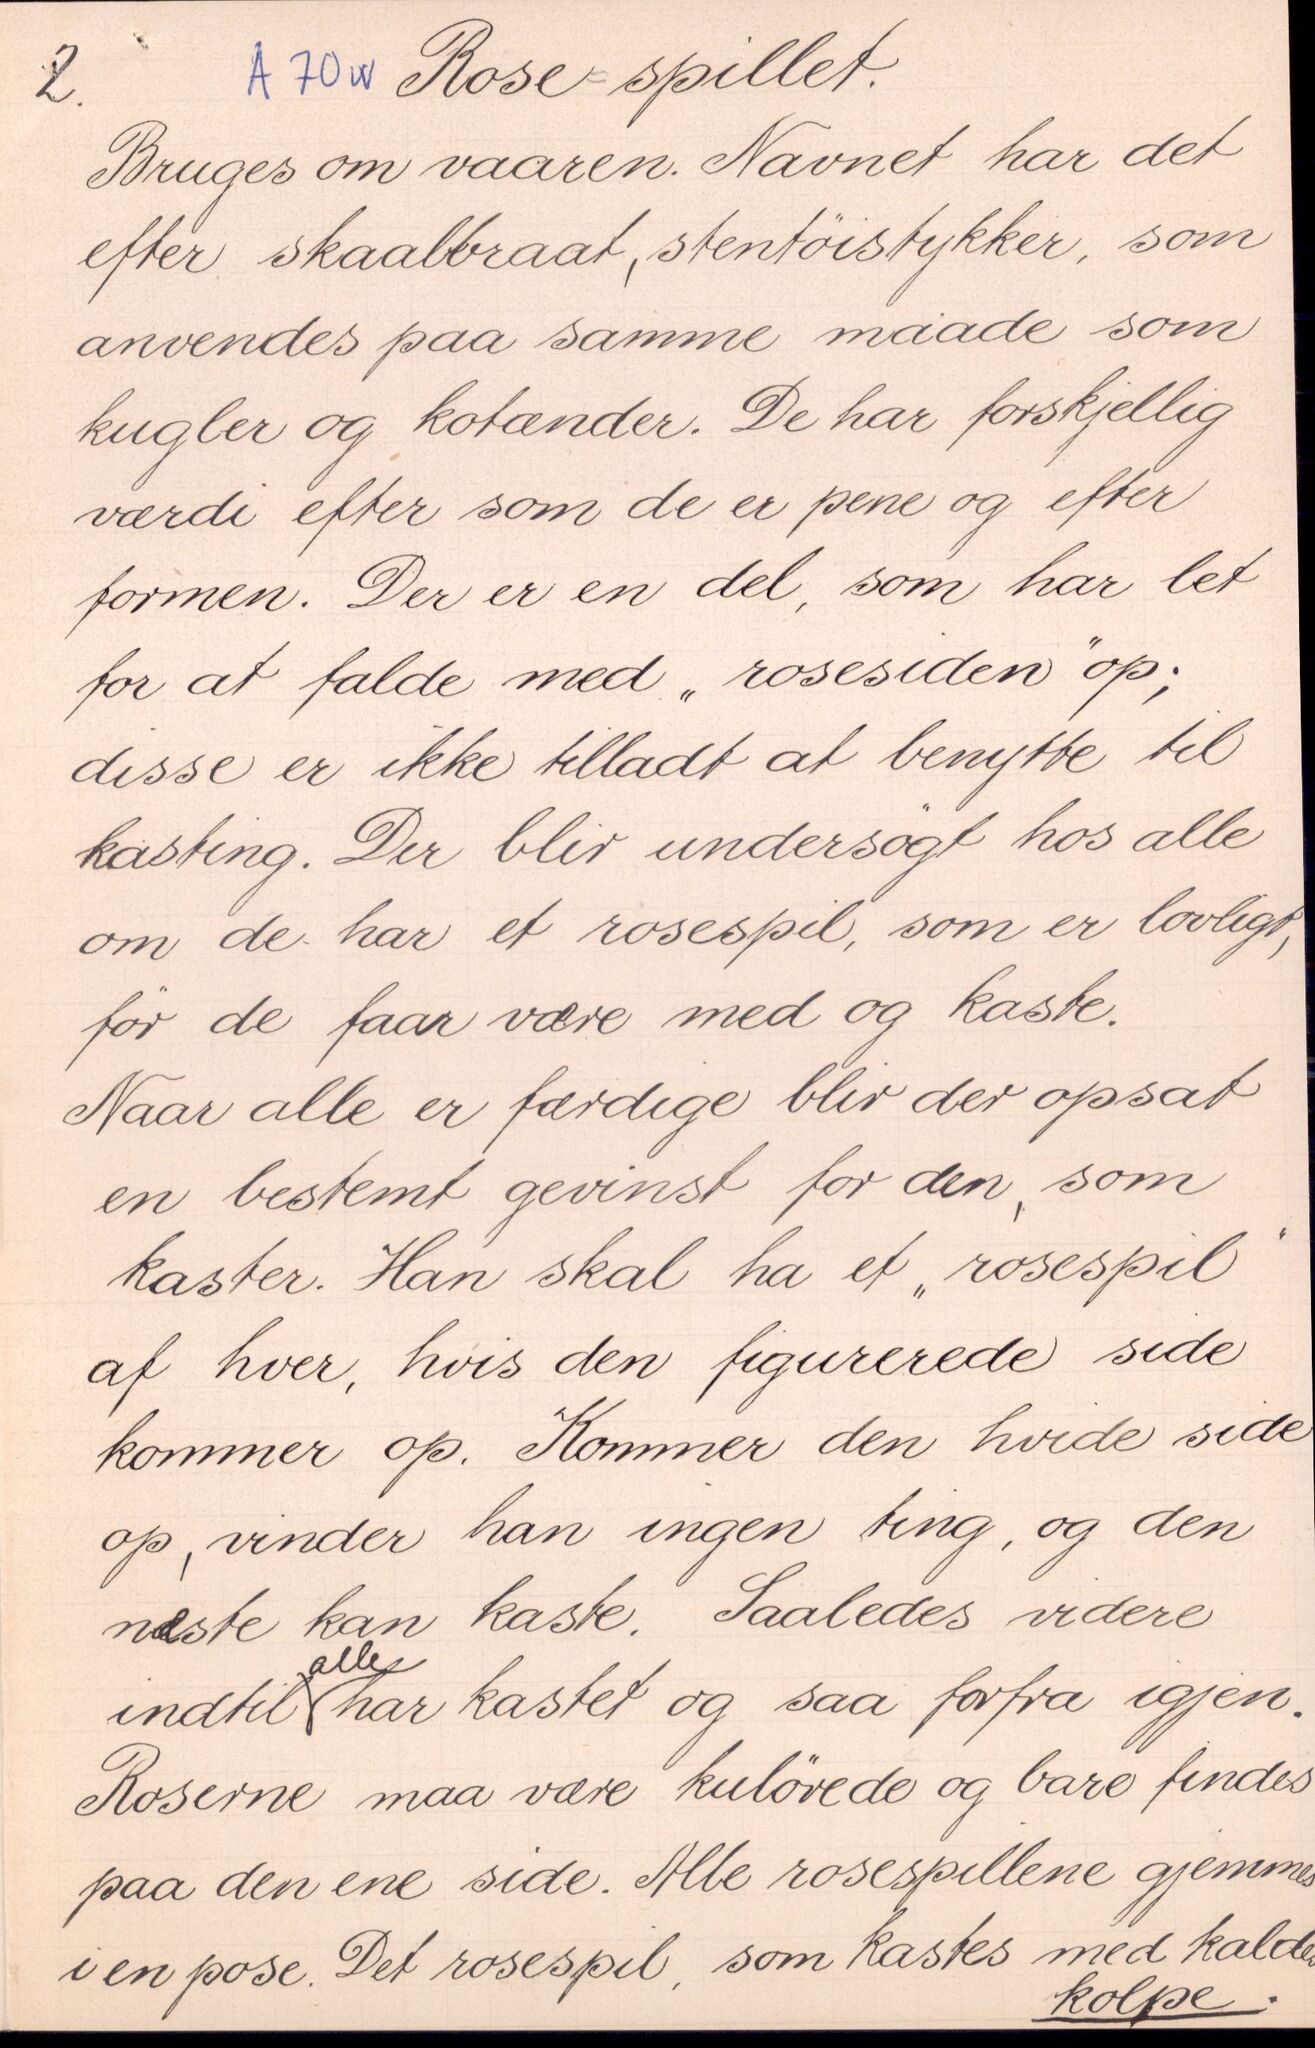 2. A 70w Rose-spillet.
Bruges om vaaren. Navnet har det
efter skaalbraat, stentöistykker, som
anvendes paa samme maade som
kugler og kotænder. De har forskjellig
værdi efter som de er pene og efter
formen. Der er en del, som har let
for at falde med „rosesiden" op;
disse er ikke tilladt at benytte til
kasting. Der blir undersögt hos alle
om de har et rosespil, som er lovligt,
för de faar være med og kaste.
Naar alle er færdige blir der opsat
en bestemt gevinst for den, som
kaster. Han skal ha et „rosespil"
af hver, hvis den figurerede side
kommer op. Kommer den hvide side
op, vinder han ingen ting, og den
næste kan kaste. Saaledes videre
indtil alle har kastet og saa forfra igjen.
Roserne maa være kulörede og bare findes
paa den ene side. Alle rosespillene gjemmes
i en pose. Det rosespil, som kastes med kaldes
kolpe.